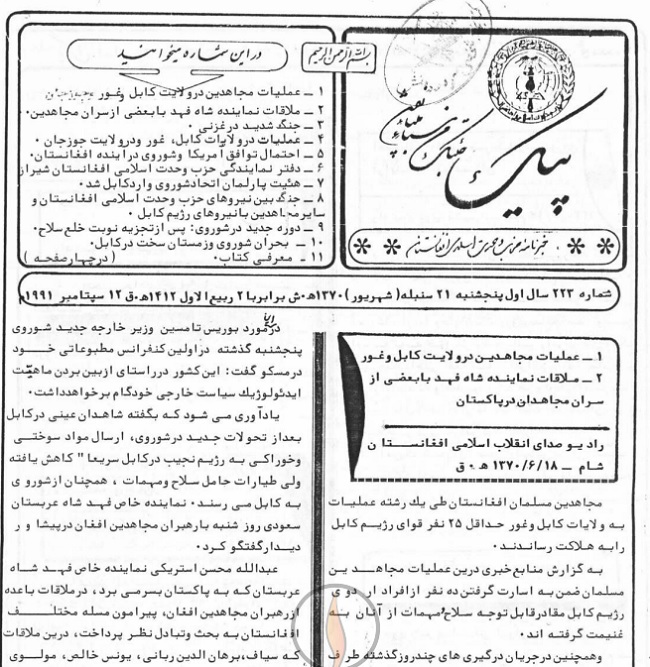 بسم الله الرحمن الرحیم
پیک
خبرنامه حزب وحدت اسلامی افغانستان
در این شماره میخوانید
۱ ـ عملیات مجاهدین در ولایت کابل وغور
۲ ـ ملاقات نماینده شاه فهد با بعضی از سران مجاهدین.
۳ ـ جنگ شدید در غزنی.
۴ ـ عملیات در ولایات کابل، غور و در ولایت جوزجان.
۵ ـ احتمال توافق آمریکا وشوروی در آینده افغانستان.
۶ ـ دفتر نمایندگی حزب وحدت اسلامی افغانستان شیراز
۷ ـ هئیت پارلمان اتحاد شوروی وارد کابل شد.
۸ ـ جنگ بین نیروهای حزب وحدت اسلامی افغانستان و
سایر مجاهدین با نیروهای رژیم کابل.
۹ ـ دوره جدید در شوروی: پس از تجزیه نوبت خلع سلاح.
۱۰ ـ بحران شوروی وزمستان سخت در کابل.
۱۱ ـ معرفی کتاب. (در چهار صفحه)
شماره ۲۲۳ سال اول پنجشنبه ۲۱ سنبله (شهریور) ۱۳۷۰ه‍.ش برابر با ۲ ربیع الاول ۱۴۱۲ه‍.ق ۱۲ سپتامبر ۱۹۹۱م
۱ ـ عملیات مجاهدین در ولایت کابل وغور
۲ ـ ملاقات نماینده شاه فهد با بعضی از
سران مجاهدان در پاکستان
رادیو صدای انقلاب اسلامی افغانستان
شام ـ ۱۳۷۰/۶/۱۸ ه‍.ق
مجاهدین مسلمان افغانستان طی یك رشته عملیات
به ولایات کابل وغور حداقل ۲۵ نفر قوای رژیم کابل
را به هلاکت رساندند.
به گزارش منابع خبری درین عملیات مجاهدین
مسلمان ضمن به اسارت گرفتن ده نفر از افراد اردوی
رژیم کابل مقادر قابل توجه سلاح ومهمات از آنان به
غنیمت گرفته اند.
وهمچنین در جریان درگیری های چند روز گذشته طرف
در مورد بوریس تامسین وزیر خارجه جدید شوروی
پنجشنبه گذشته در اولین کنفرانس مطبوعاتی خود
در مسکو گفت: این کشور در راستای از بین بردن ماهیت
ایدئولوژیك سیاست خارجی خود گام برخواهد داشت.
یادآوری می شود که بگفته شاهدان عینی در کابل
بعد از تحولات جدید در شوروی، ارسال مواد سوختی
وخوراکی به رژیم نجیب در کابل سریعا" کاهش یافته
ولی طیارات حامل سلاح ومهمات، همچنان از شوروی
به کابل می رسند. نماینده خاص فهد شاه عربستان
سعودی روز شنبه با رهبران مجاهدین افغان در پیشاور
دیدار گفتگو کرد.
عبدالله محسن استریکی نماینده خاص فهد شاه
عربستان که به پاکستان بسر می برد، در ملاقات با عده
از رهبران مجاهدین افغان، پیرامون مسله مختلف
افغانستان به بحث وتبادل نظر پرداخت، درین ملاقات
که سیاف، برهان الدین ربانی، یونس خالص، مولوی